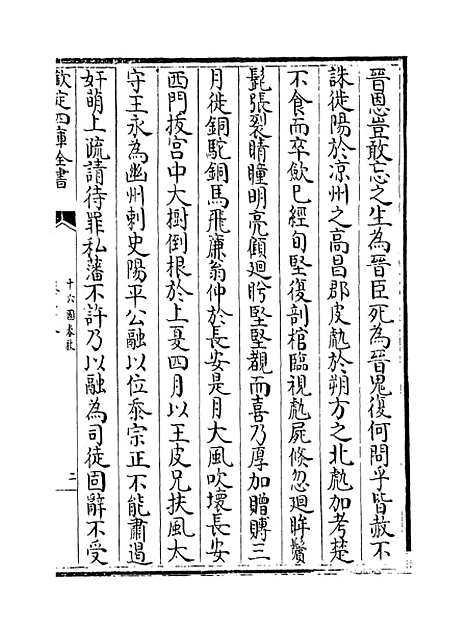 晉恩豈敢忘之生為晉臣死為晉鬼復何問乎皆赦不
誅徙陽於涼州之高昌郡皮虓於朔方之北虓加考楚
不食而卒飲巳經旬堅復剖棺臨視虓屍倏忽廻眸鬢
髭張裂睛瞳明亮顧廻盻堅堅覩而喜乃厚加贈賻三
月徙銅駝銅馬飛廉翁仲於長安是月大風吹壞長安
西門拔宫中大樹倒根於上夏四月以王皮兄扶風太
守王永為幽州刺史陽平公融以位忝宗正不能肅遏
奸萌上疏請待罪私藩不許乃以融為司徒固辭不受
欽定四庫全書
十六國春秋
二